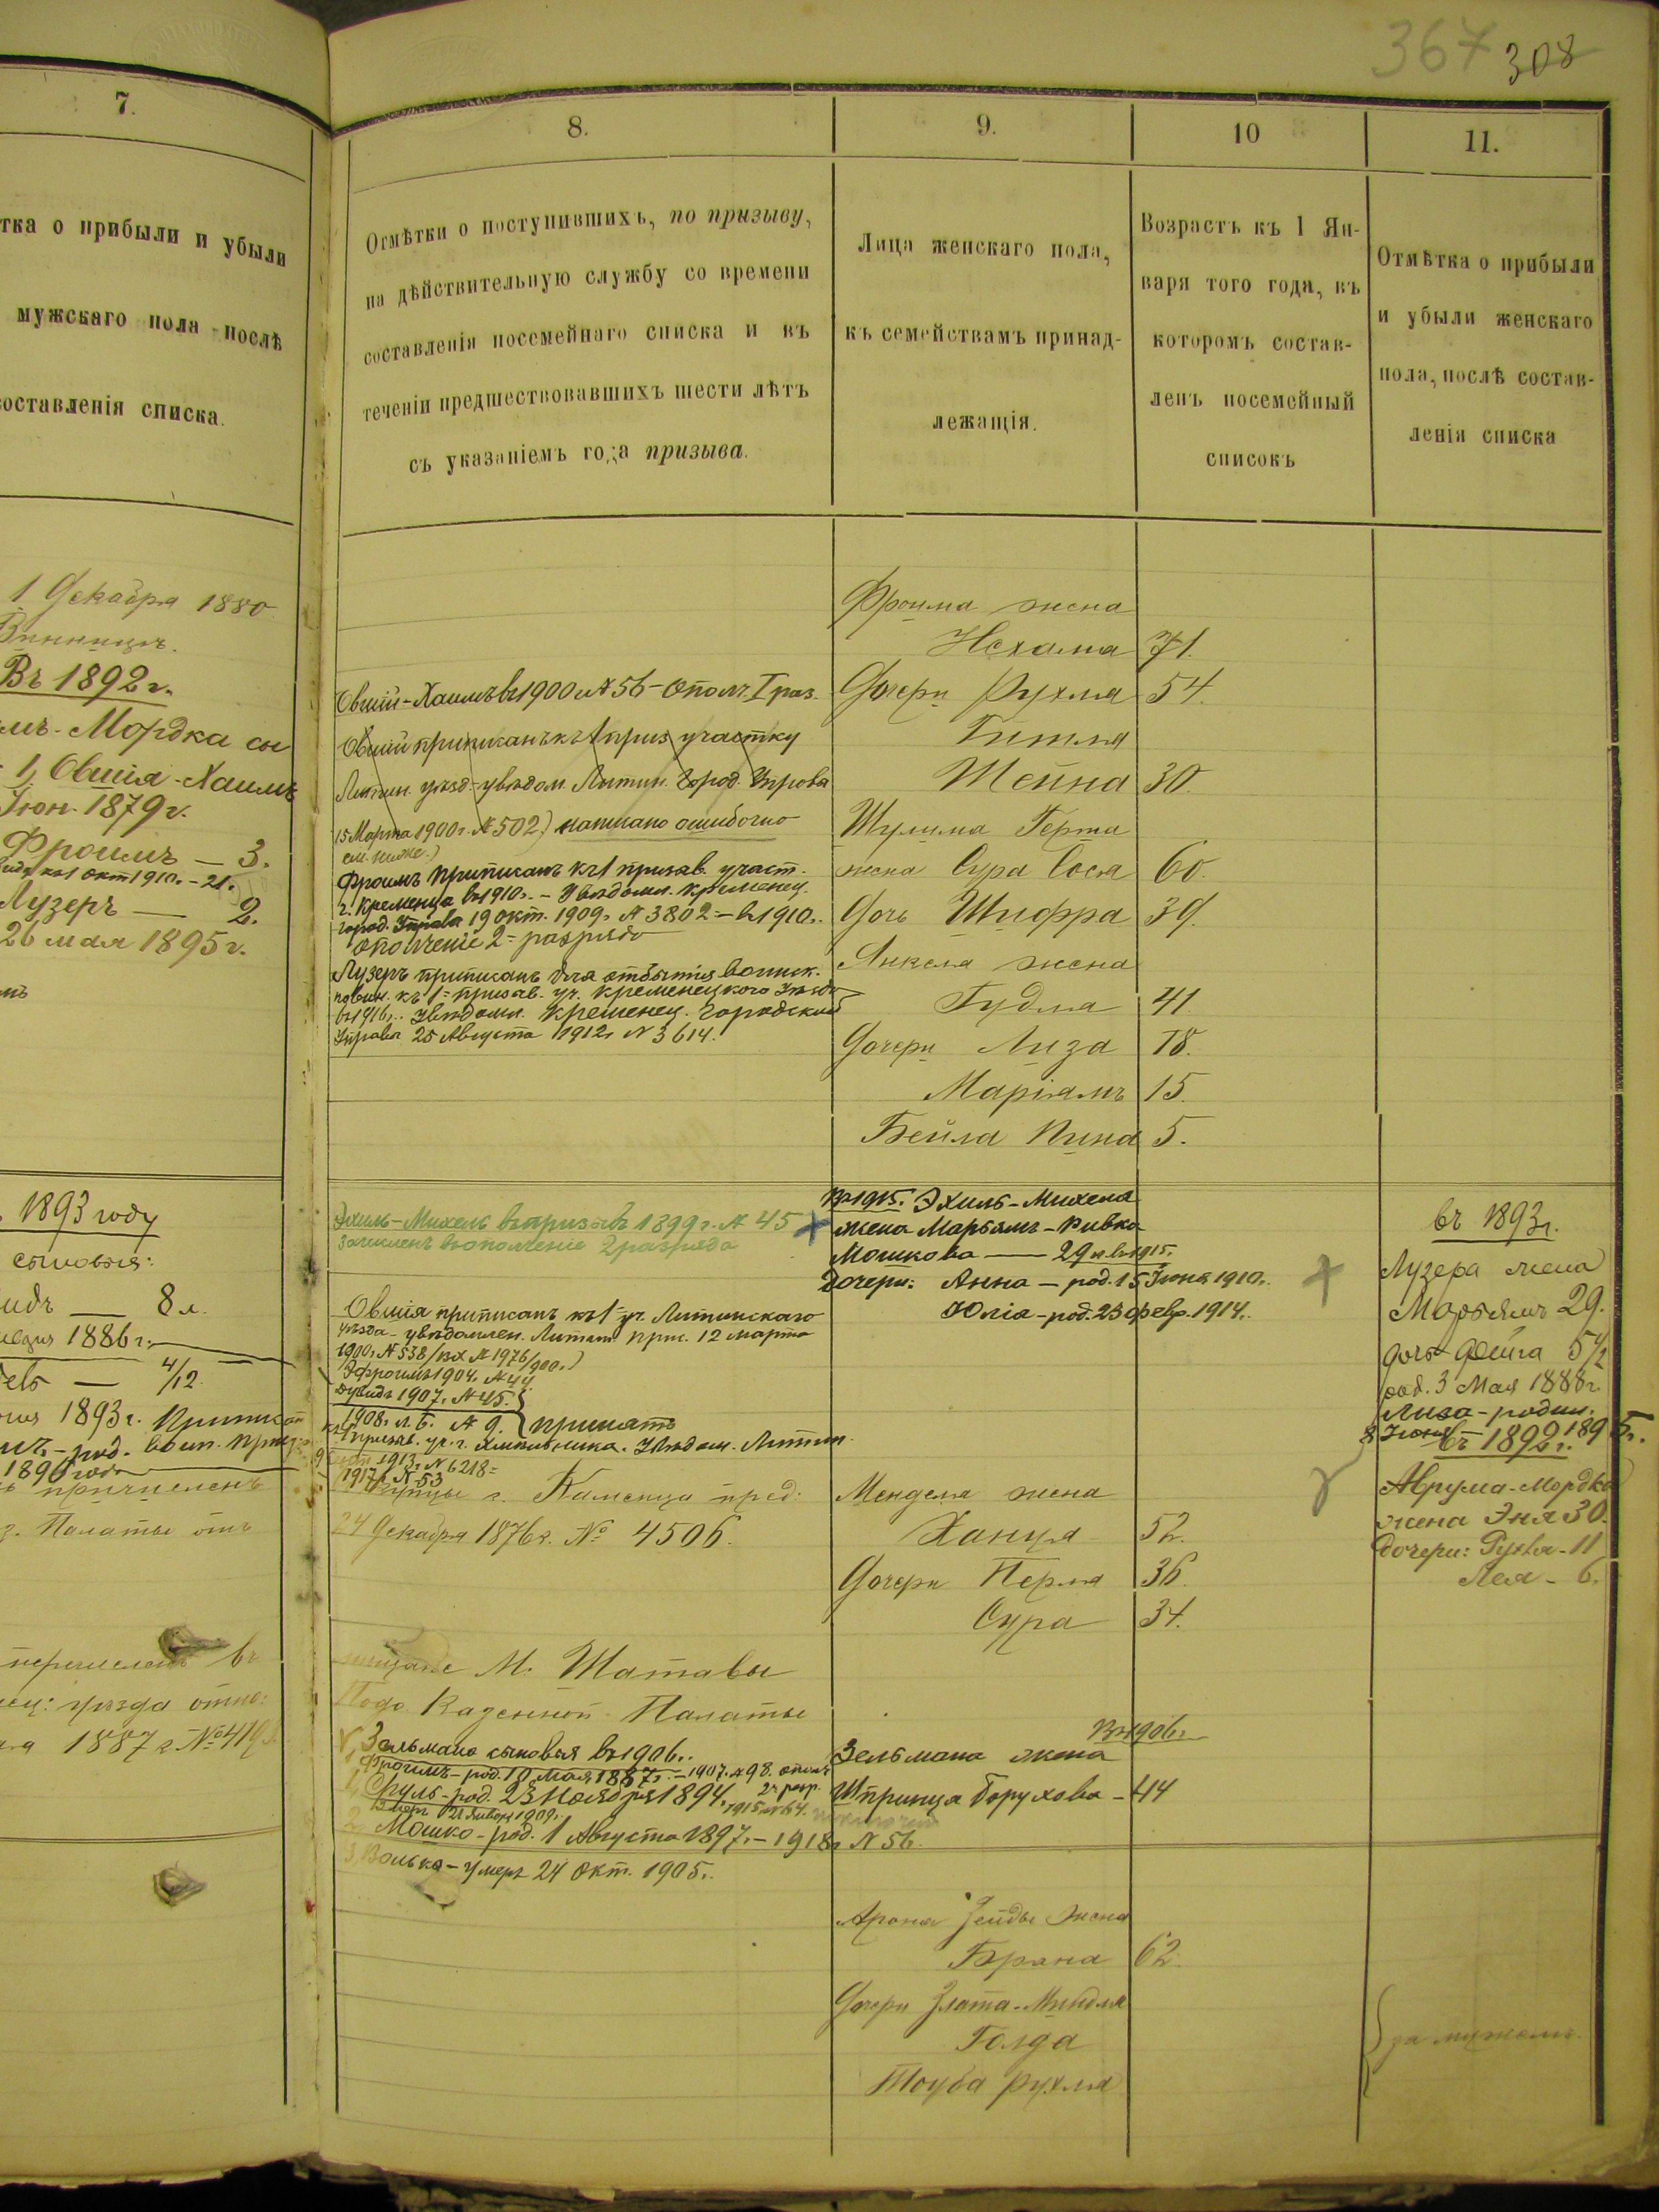 367 308
7.
тка о прибыли и убыли
мужскаго пола послѣ
составленія списка.
1 Декабря 1880
Винницѣ.
Въ 1892 г.
Мордка
1, Овшія-Хаимъ
Іюн. 1879 г.
Фроимъ — 3.
1 окт 1910. — 21.
Лузеръ — 2.
26 мая 1895 г.
1893 году
сыновья:
8 л.
1886 г.
4/12
1893 г.
род.
причисленъ
Палаты отъ
перечисленъ въ
уѣзда отно:
1887 г. №
8.
Отмѣтки о поступившихъ, по призыву,
на дѣйствительную службу со времени
составленія посемейнаго списка и въ
теченіи предшествовавшихъ шести лѣтъ
съ указаніемъ года призыва.
Овшій-Хаимъ въ 1900 г. № 56 — Ополч. I раз.
Овшій приписанъ къ 1 приз участку
Литин. уѣзд. — увѣдом. Литин. Город. Управа
15 Марта 1900 г. № 502) написано ошибочно
см. ниже.)
Фроимъ приписанъ къ 1 призыв. участ.
г. Кременца въ 1910 г. — Увѣдомл. Кременец.
город. Управа 19 окт. 1909 г. № 3802 — въ 1910 г.
ополченіе 2 = разряда
Лузеръ приписанъ для отбытія воинск.
повин. къ 1 = призыв. уч. Кременецкого Уѣзда
въ 1916 г. Увѣдомл. Кременец. Городской
Управы 25 Августа 1912 г. № 3614.
Эхиль-Михель въ призывъ 1899 г. № 45
зачисленъ въ ополченіе 2 разряда
Овшія приписанъ къ 1 = уч. Литинскаго
уѣзда — увѣдомлен. Литин. 12 марта
1900 г. № 538/вх № 1976/900 г.)
Эфроимъ 1904 г. № 44
Дувидъ 1907 г. № 45.
1908 г. № 9. принятъ
къ 1 призыв. уч. г. Хмѣльника. Увѣдом. Литин.
1913 г. № 6218 =
1917 г. № 53
купцы г. Каменца пред.
24 Декабря 1876 г. № 4506.
мѣщане М. Шатавы
Подо. Казенной Палаты
Зельмана сыновья въ 1906 г.
Фроимъ — род. 10 мая 1887 г. — 1907. № 98. ополч
2 разр.
1, Сруль — род. 23 Ноября 1894. 1915 № 64.
21 Января 1909 г.
2, Мошко — род. 1 Августа 1897 г. — 1918 г. № 56.
3, Волько — умеръ 24 окт. 1905 г.
9.
Лица женскаго пола,
къ семействамъ принад-
лежащія.
Фроима жена
Нехама
Дочери Рухля
Гитля
Шейна
Шулима Герша
жена Сура Сося
Дочь Шифра
Янкеля жена
Гудля
Дочери Лиза
Маріямъ
Бейла Пина
Въ 1915. Эхиль-Михеля
жена Марьямъ-Ривка
Мошкова — 29 л. въ 1915.
Дочери: Анна — род. 15 Іюня 1910 г.
Юлія — род. 23 февр. 1914 г.
Менделя жена
Ханця
Дочери Перля
Сура
Въ 1906 г.
Зельмана жена
Шпринца Борухова — 44
Арона Зейды жена
Брана
Дочери Злата-Миндля
Голда
Тоуба Рухля
10
Возрастъ къ 1 Ян-
варя того года, въ
которомъ состав-
ленъ посемейный
списокъ
71.
54.
30.
60.
39.
41.
18.
15.
5.
52.
36.
34.
62.
11.
Отмѣтка о прибыли
и убыли женскаго
пола, послѣ состав-
ленія списка
въ 1893 г.
Лузера жена
Марьямъ 29.
дочь Фейга 5 1/2
род. 3 Мая 1888 г.
Лиза — родил.
8 Іюня 1895 г.
въ 1892 г.
Аврума-Мордка
жена Эня 30.
дочери: Рухля — 11
Лея — 6.
за мужемъ.